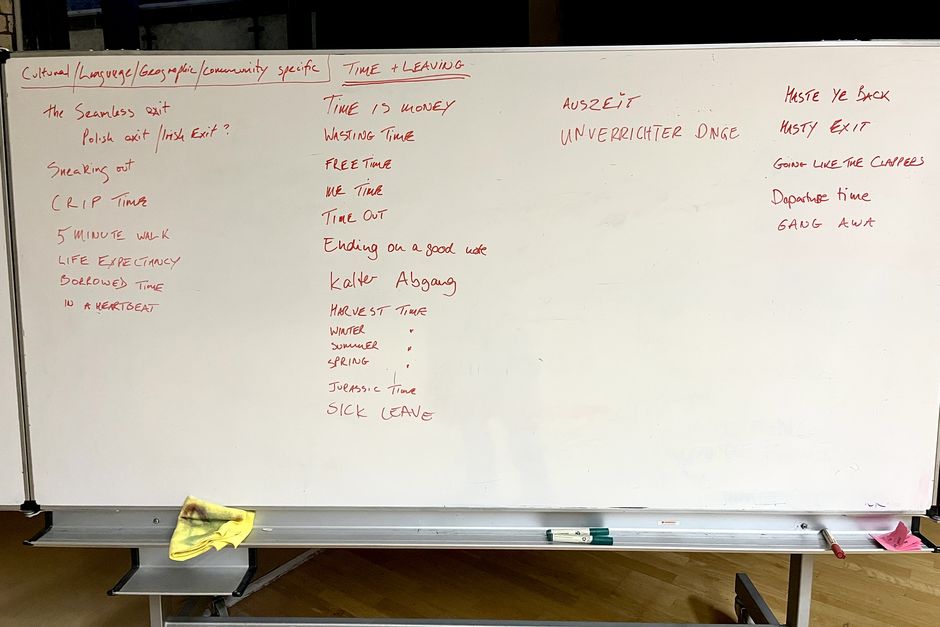 Cultural/Language/Geographic/community specific
TIME + LEAVING
the Seamless exit
Polish exit/Irish Exit?
Sneaking out
CRIP TIME
5 MINUTE WALK
LIFE EXPECTANCY
BORROWED TIME
IN A HEARTBEAT
TIME IS MONEY
WASTING TIME
FREE TIME
ME TIME
TIME OUT
Ending on a good note
Kalter Abgang
HARVEST TIME
WINTER "
SUMMER "
SPRING "
JURASSIC TIME
SICK LEAVE
AUSZEIT
UNVERRICHTER DINGE
HASTE YE BACK
HASTY EXIT
GOING LIKE THE CLAPPERS
Departure time
GANG AWA